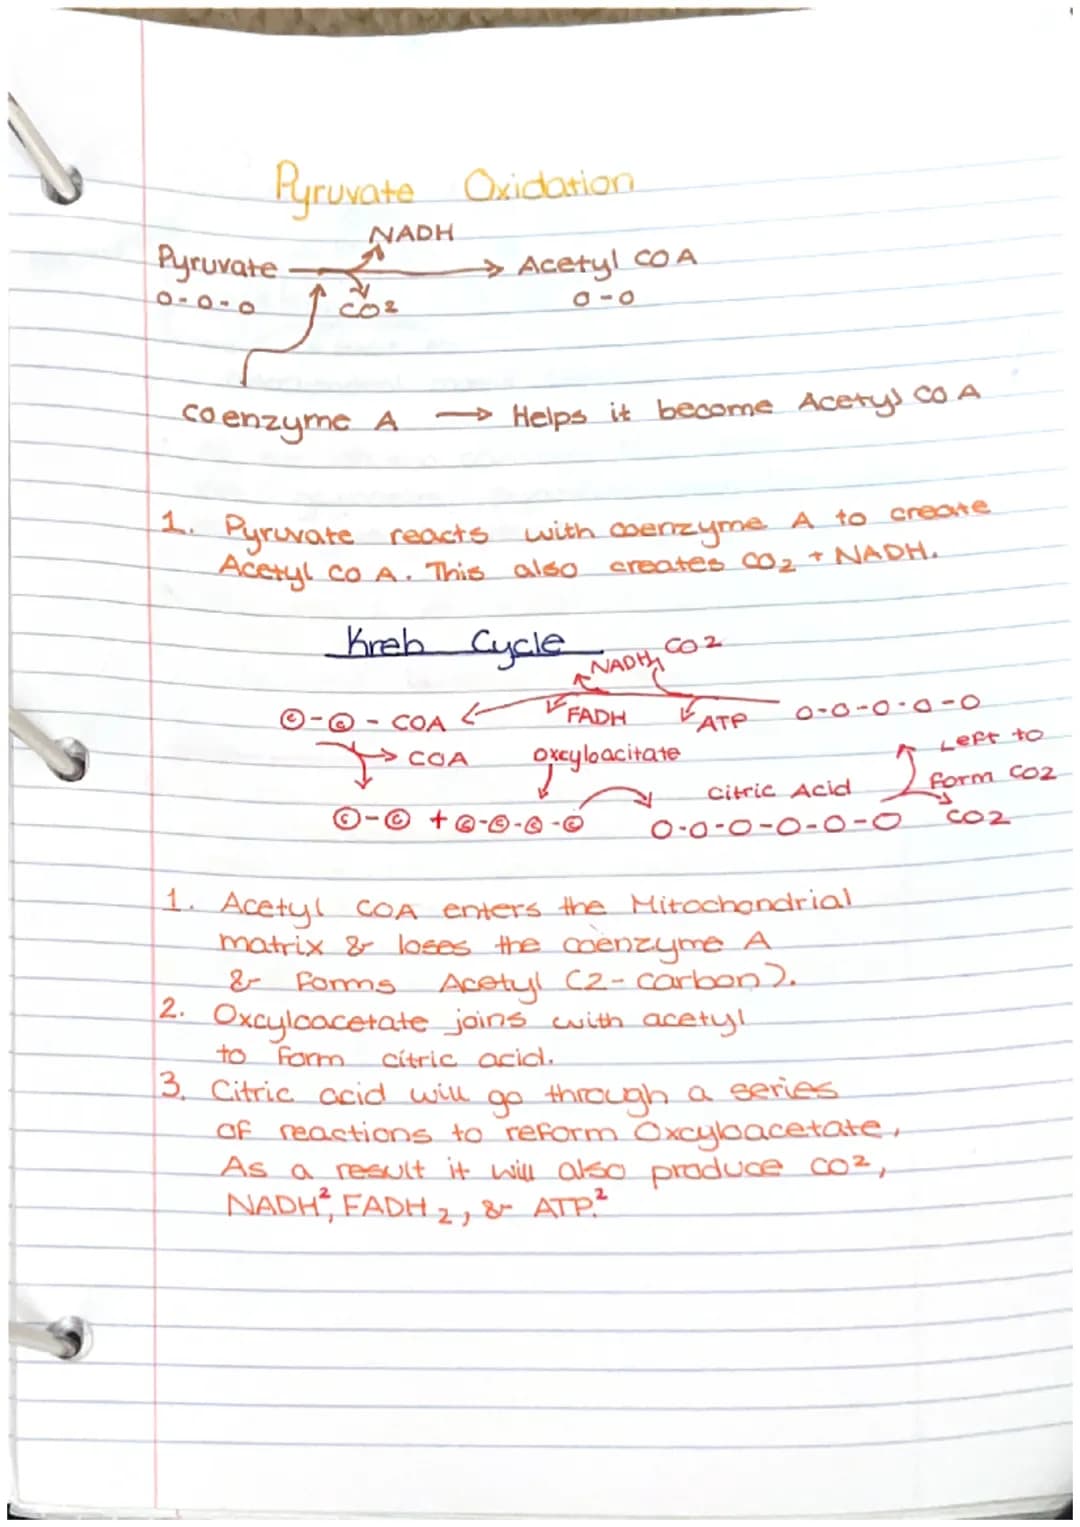 Pyruvate Oxidation
NADH
Pyruvate → Acetyl COA
o-o-o CO2 o-o
coenzyme A → Helps it become Acetyl CO A
1. Pyruvate reacts with coenzyme A to create
Acetyl CO A. This also creates CO2 + NADH.
Kreb Cycle
NADH CO2
C-C-COA FADH ATP O-O-O-O-O
COA oxcyloacitate Left to
Citric Acid form CO2
C-C + C-C-C-C O-O-O-O-O-O CO2
1. Acetyl COA enters the Mitochondrial
matrix & loses the coenzyme A
& forms Acetyl (2-carbon).
2. Oxcyloacetate joins with acetyl
to form citric acid.
3. Citric acid will go through a series
of reactions to reform Oxcyloacetate,
As a result it will also produce CO2,
NADH², FADH2, & ATP.²